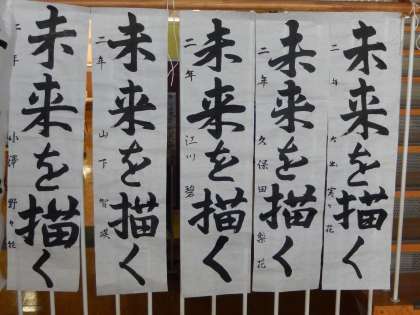 未来を描く
二年 久保田 梨花
未来を描く
二年 江川 碧
未来を描く
二年 山下 智咲
未来を描く
二年 小澤 野々花
未来を描く